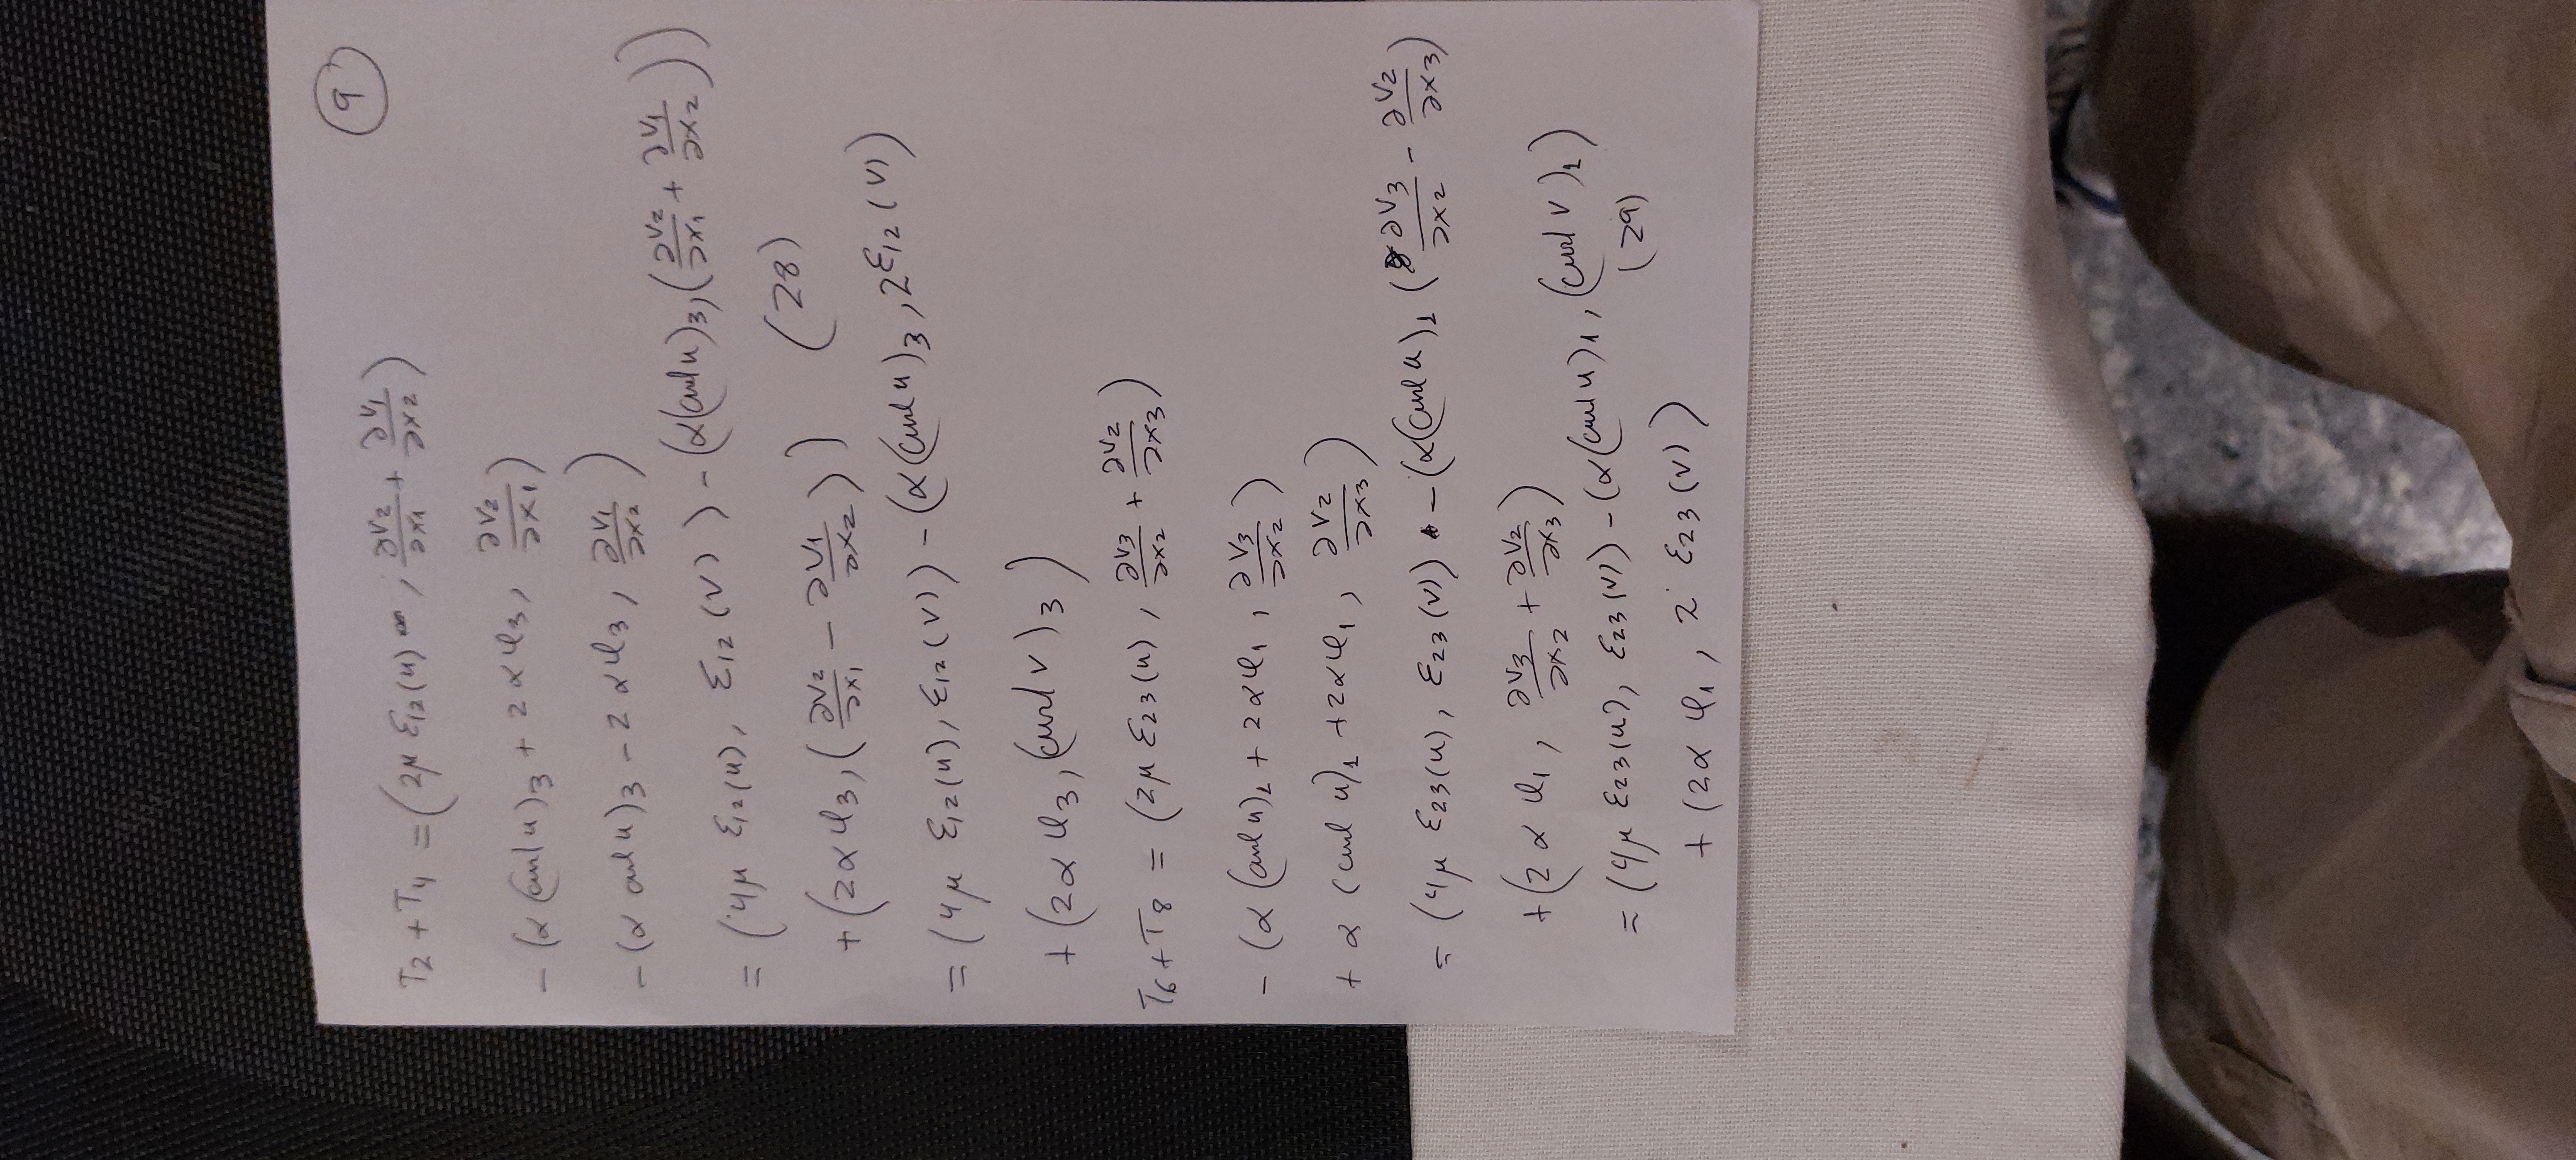 (9)
T₂ + T₄ = (2μ ε₁₂(u), ∂v₂/∂x₁ + ∂v₁/∂x₂)
- (α(curl u)₃ + 2αφ₃, ∂v₂/∂x₁)
- (α curl u)₃ - 2αφ₃, ∂v₁/∂x₂)
= (4μ ε₁₂(u), ε₁₂(v)) - (α(curl u)₃, (∂v₂/∂x₁ + ∂v₁/∂x₂))
+ (2αφ₃, (∂v₂/∂x₁ - ∂v₁/∂x₂)) (28)
= (4μ ε₁₂(u), ε₁₂(v)) - (α(curl u)₃, 2ε₁₂(v)
+ (2αφ₃, (curl v)₃)
T₆ + T₈ = (2μ ε₂₃(u), ∂v₃/∂x₂ + ∂v₂/∂x₃)
- (α(curl u)₁ + 2αφ₁, ∂v₃/∂x₂)
+ α (curl u)₁ + 2αφ₁, ∂v₂/∂x₃)
= (4μ ε₂₃(u), ε₂₃(v)) - (α(curl u)₁ (∂v₃/∂x₂ - ∂v₂/∂x₃)
+ (2αφ₁, ∂v₃/∂x₂ + ∂v₂/∂x₃)
= (4μ ε₂₃(u), ε₂₃(v)) - (α(curl u)₁, (curl v)₁)
+ (2αφ₁, 2 ε₂₃(v)) (29)